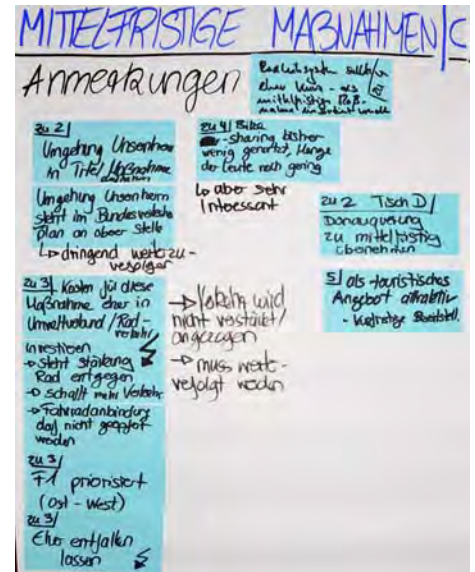 MITTELFRISTIGE MAßNAHMEN/C
Anmerkungen
eher kurz- als
zu 2/
Umgehung Unsenheim
in Titel/Maßnahme
Umgehung Unsenheim
steht im Bundesverkehrs
plan an oberer Stelle
↳ dringend weiterzu-
verfolgen
zu 4/ Bike
-sharing bisher
wenig genutzt, Menge
der Leute noch gering
↳ aber sehr
Interessant
zu 2 Tisch D/
Donauquerung
zu mittelfristig
übernehmen
5/ als touristisches
Angebot attraktiv
- kurzfristige Bereitstell.
zu 3/ Kosten für diese
Maßnahme eher in
Umweltverbund/Rad-
verkehr/
investieren
→ steht Stärkung
Rad entgegen
→ schafft mehr Verkehr
→ Fahrradanbindung
darf nicht geopfert
werden
→ Verkehr wird
nicht verstärkt/
angezogen
→ muss weiter-
verfolgt werden
zu 3/
F1 priorisiert
(Ost - West)
zu 3/
Eher entfallen
lassen